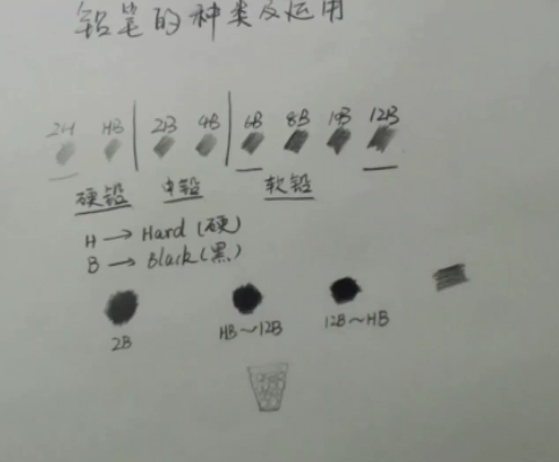 铅笔的种类及运用
2H HB 2B 4B 6B 8B 10B 12B
硬铅 中铅 软铅
H → Hard (硬)
B → Black (黑)
2B HB~12B 12B~HB